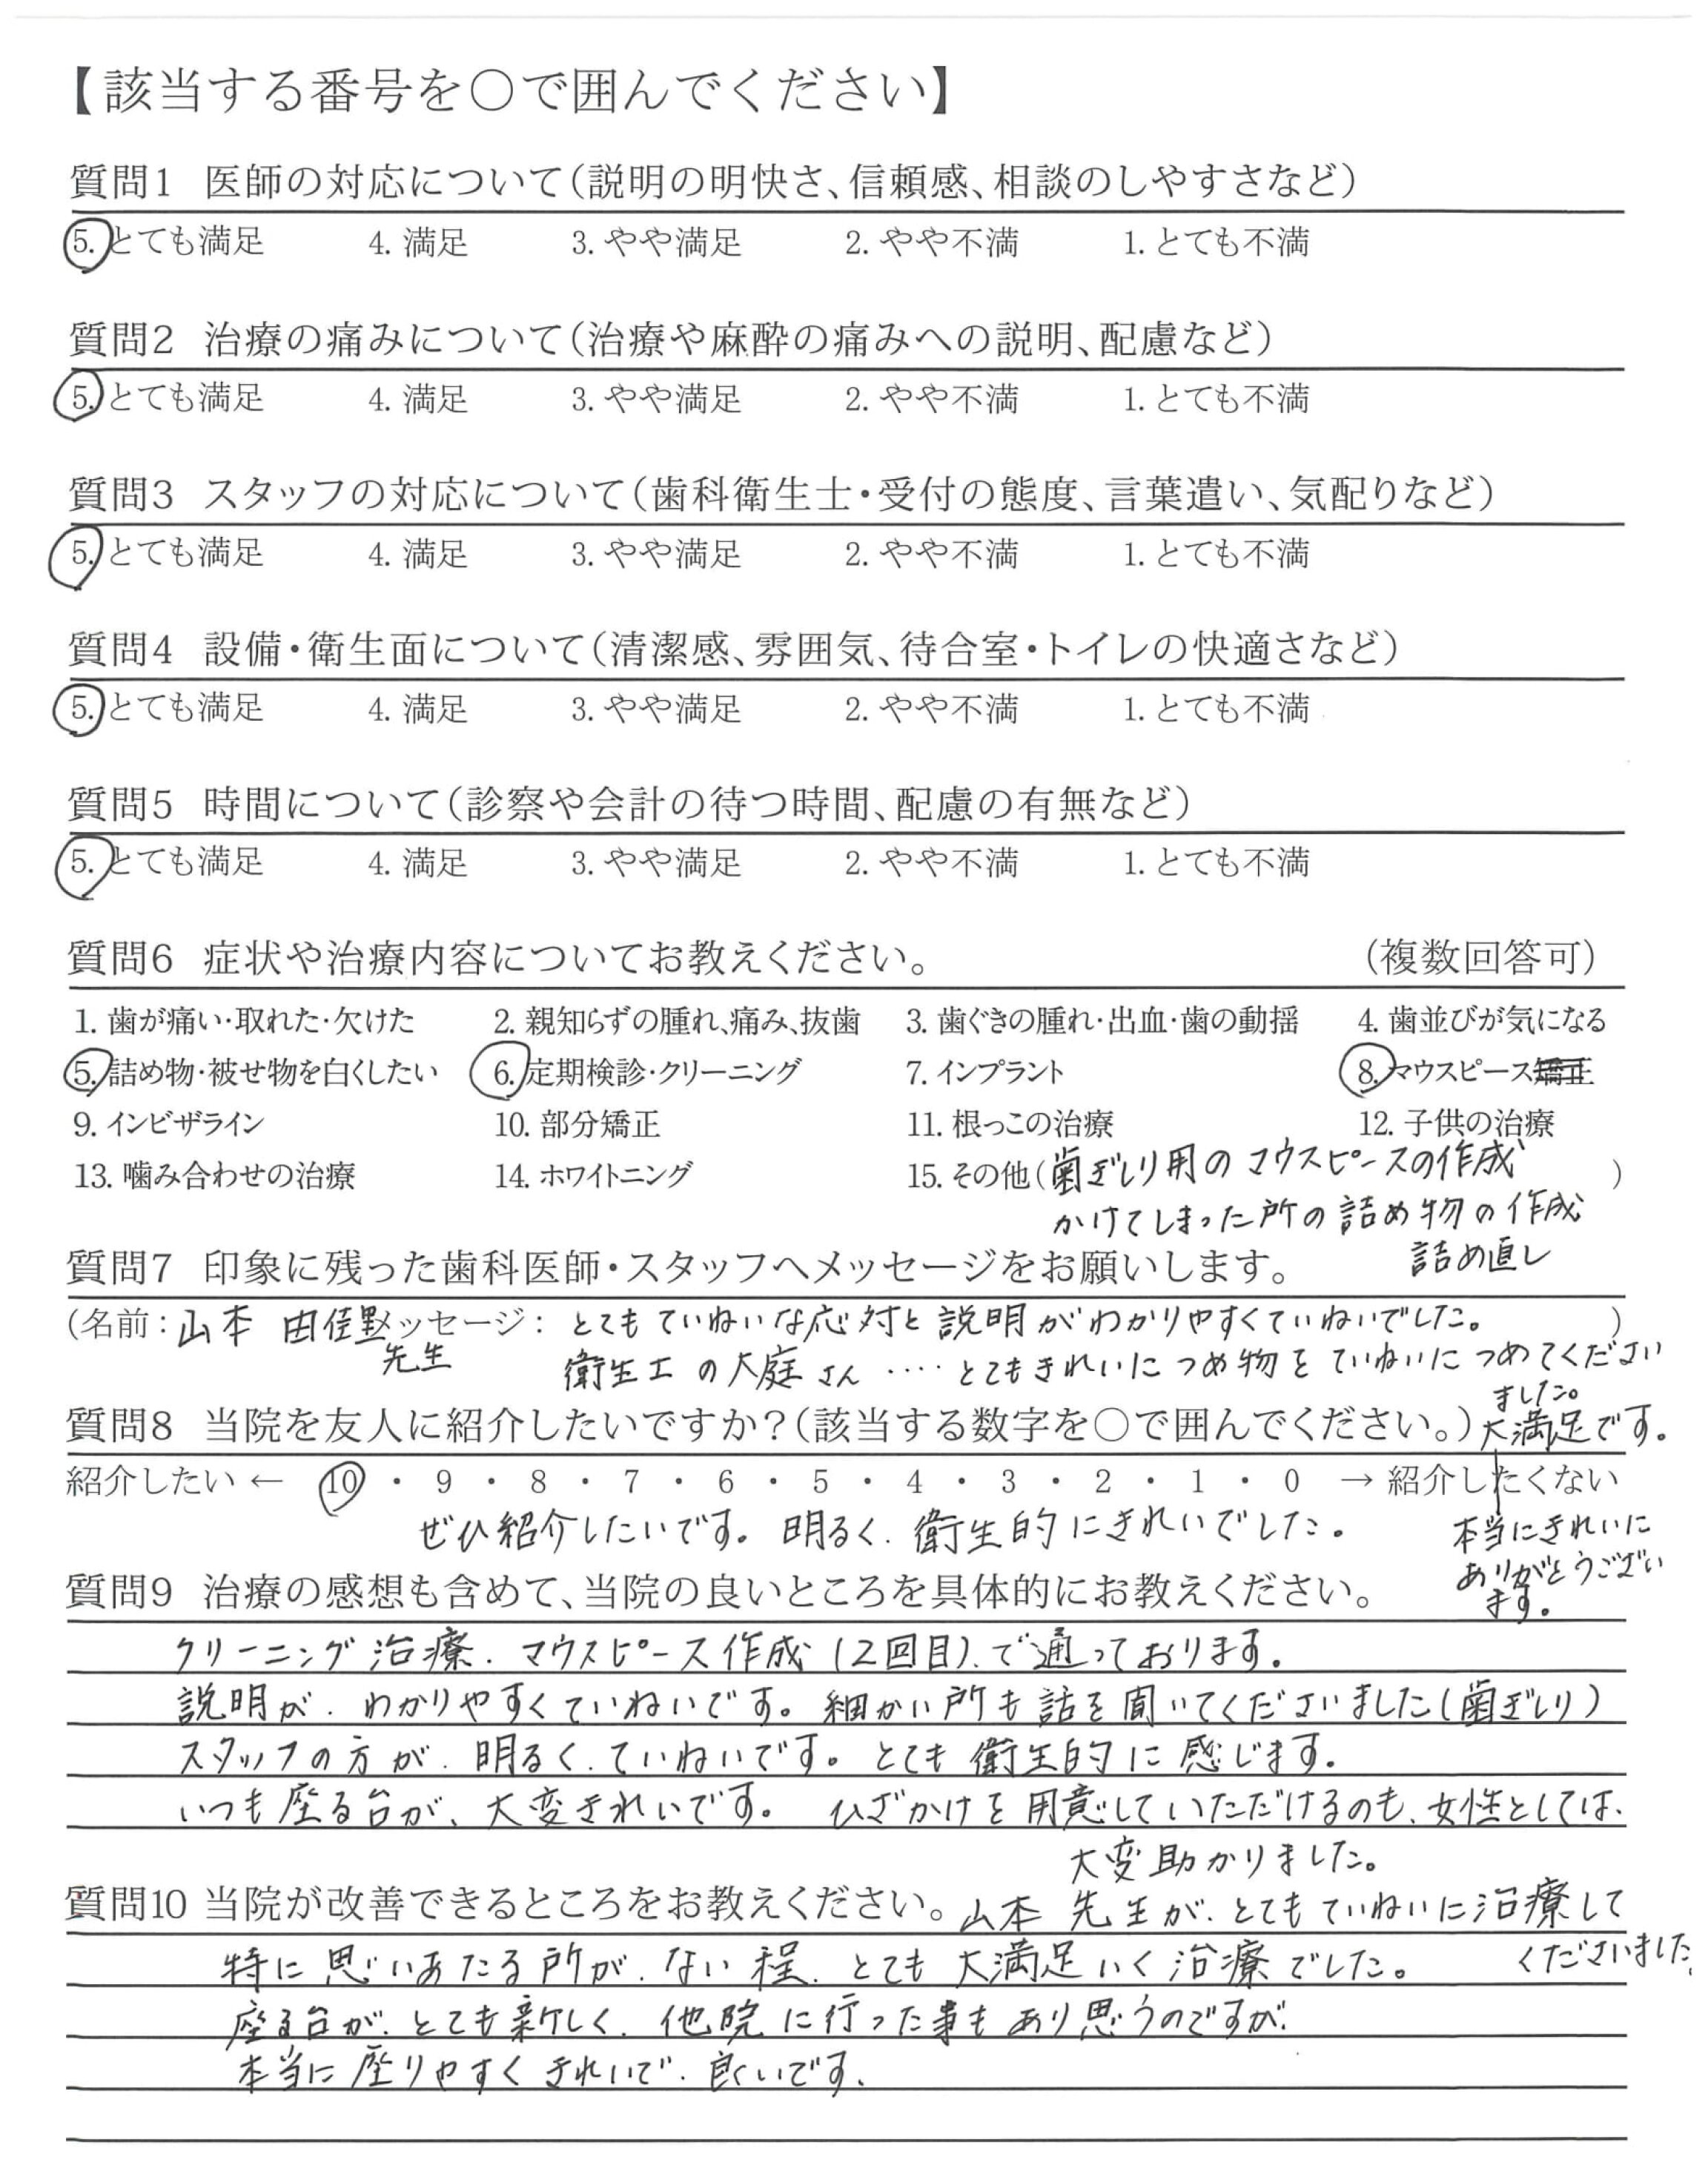 【該当する番号を○で囲んでください】
質問1 医師の対応について(説明の明快さ、信頼感、相談のしやすさなど)
5. とても満足 4. 満足 3. やや満足 2. やや不満 1. とても不満
質問2 治療の痛みについて(治療や麻酔の痛みへの説明、配慮など)
5. とても満足 4. 満足 3. やや満足 2. やや不満 1. とても不満
質問3 スタッフの対応について(歯科衛生士・受付の態度、言葉遣い、気配りなど)
5. とても満足 4. 満足 3. やや満足 2. やや不満 1. とても不満
質問4 設備・衛生面について(清潔感、雰囲気、待合室・トイレの快適さなど)
5. とても満足 4. 満足 3. やや満足 2. やや不満 1. とても不満
質問5 時間について(診察や会計の待つ時間、配慮の有無など)
5. とても満足 4. 満足 3. やや満足 2. やや不満 1. とても不満
質問6 症状や治療内容についてお教えください。 (複数回答可)
1. 歯が痛い・取れた・欠けた 2. 親知らずの腫れ、痛み、抜歯 3. 歯ぐきの腫れ・出血・歯の動揺 4. 歯並びが気になる
5. 詰め物・被せ物を白くしたい 6. 定期検診・クリーニング 7. インプラント 8. マウスピース矯正
9. インビザライン 10. 部分矯正 11. 根っこの治療 12. 子供の治療
13. 噛み合わせの治療 14. ホワイトニング 15. その他(歯ぎしり用のマウスピースの作成 )
かけてしまった所の詰め物の作成
詰め直し
質問7 印象に残った歯科医師・スタッフへメッセージをお願いします。
(名前:山本 由佳 メッセージ: とてもていねいな応対と説明がわかりやすくていねいでした。 )
先生 衛生工の大庭さん ‥‥とてもきれいにつめ物をていねいにつめてください
ました。
質問8 当院を友人に紹介したいですか?(該当する数字を○で囲んでください。) 大満足です。
紹介したい ← 10 ・ 9 ・ 8 ・ 7 ・ 6 ・ 5 ・ 4 ・ 3 ・ 2 ・ 1 ・ 0 → 紹介したくない
ぜひ紹介したいです。明るく、衛生的にきれいでした。
本当にきれいに
ありがとうござい
ます。
質問9 治療の感想も含めて、当院の良いところを具体的にお教えください。
クリーニング治療、マウスピース作成(2回目)、で通っております。
説明が、わかりやすくていねいです。細かい所も話を聞いてくださいました(歯ぎしり)
スタッフの方が、明るく、ていねいです。とても衛生的に感じます。
いつも座る台が、大変きれいです。 ひざかけを用意していただけるのも、女性としては、
大変助かりました。
質問10 当院が改善できるところをお教えください。山本 先生が、とてもていねいに治療して
くださいました。
特に思いあたる所が、ない程、とても大満足いく治療でした。
座る台が、とても新しく、他院に行った事もあり思うのですが、
本当に座りやすくきれいで、良いです。